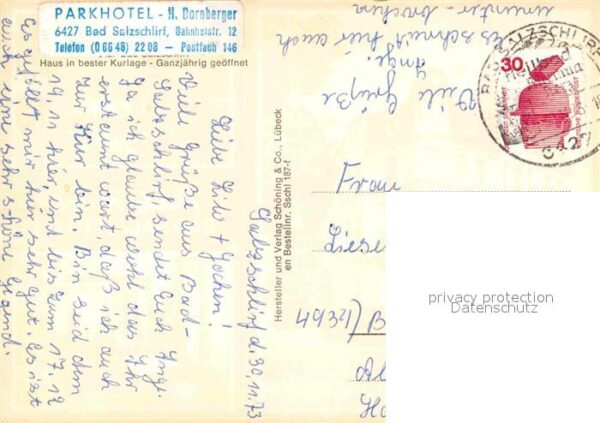 PARKHOTEL - H. Dornberger
6427 Bad Salzschlirf, Bahnhofstr. 12
Telefon (0 66 48) 22 08 — Postfach 146
Haus in bester Kurlage - Ganzjährig geöffnet
Salzschlirf d. 30.11.73
Liebe Lilo + Jochen!
Viele Grüße aus Bad-
Salzschlirf, sendet Euch Inge.
Ja ich glaube wohl das Ihr
erstaunt wart daß ich auch
zur Kur bin. Bin seid dem
19.11 hier, und bis zum 17.12
Es gefällt mir hier sehr gut. Es ist
auch eine sehr schöne Gegend.
Es schneit hier auch
mitunter
Viele Grüße
Inge.
Hersteller und Verlag Schöning & Co., Lübeck
en Bestellnr. Sschl 187-f
30
BAD SALZSCHLIRF
6427
Frau
Liese
privacy protection
Datenschutz